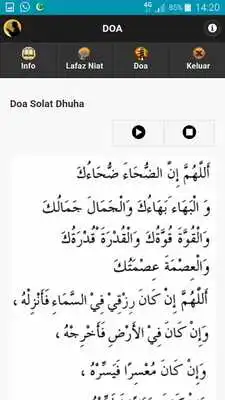 4G
85%
14:20
DOA
Info
Lafaz Niat
Doa
Keluar
Doa Solat Dhuha
أَللَّهُمَّ إِنَّ الضُّحَاءَ ضُحَاءُكَ
وَ الْبَهَاءَ بَهَاءُكَ وَالْجَمَالَ جَمَالُكَ
وَالْقُوَّةَ قُوَّتُكَ وَالْقُدْرَةَ قُدْرَتُكَ
وَالْعِصْمَةَ عِصْمَتُكَ
أَللَّهُمَّ إِنْ كَانَ رِزْقِيْ فِيْ السَّمَاءِ فَأَنْزِلْهُ
وَإِنْ كَانَ فِيْ الْأَرْضِ فَأَخْرِجْهُ ،
وَإِنْ كَانَ مُعْسِرًا فَيَسِّرْهُ ،